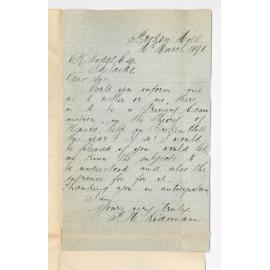 Broken Hill,
16 March 1898
C. R. Hodge Esq.
Adelaide.
Dear Sir,
Could you inform me
as to wether or no, there
is to be a Primary Exam
ination, in the Theory of
Music, held in Broken Hill
this year? If so, I would
be pleased if you would let
me know the subjects to
be understood and also the
entrance fee for it.
Thanking you in anticipation
I am,
Yours very truly
Kidman